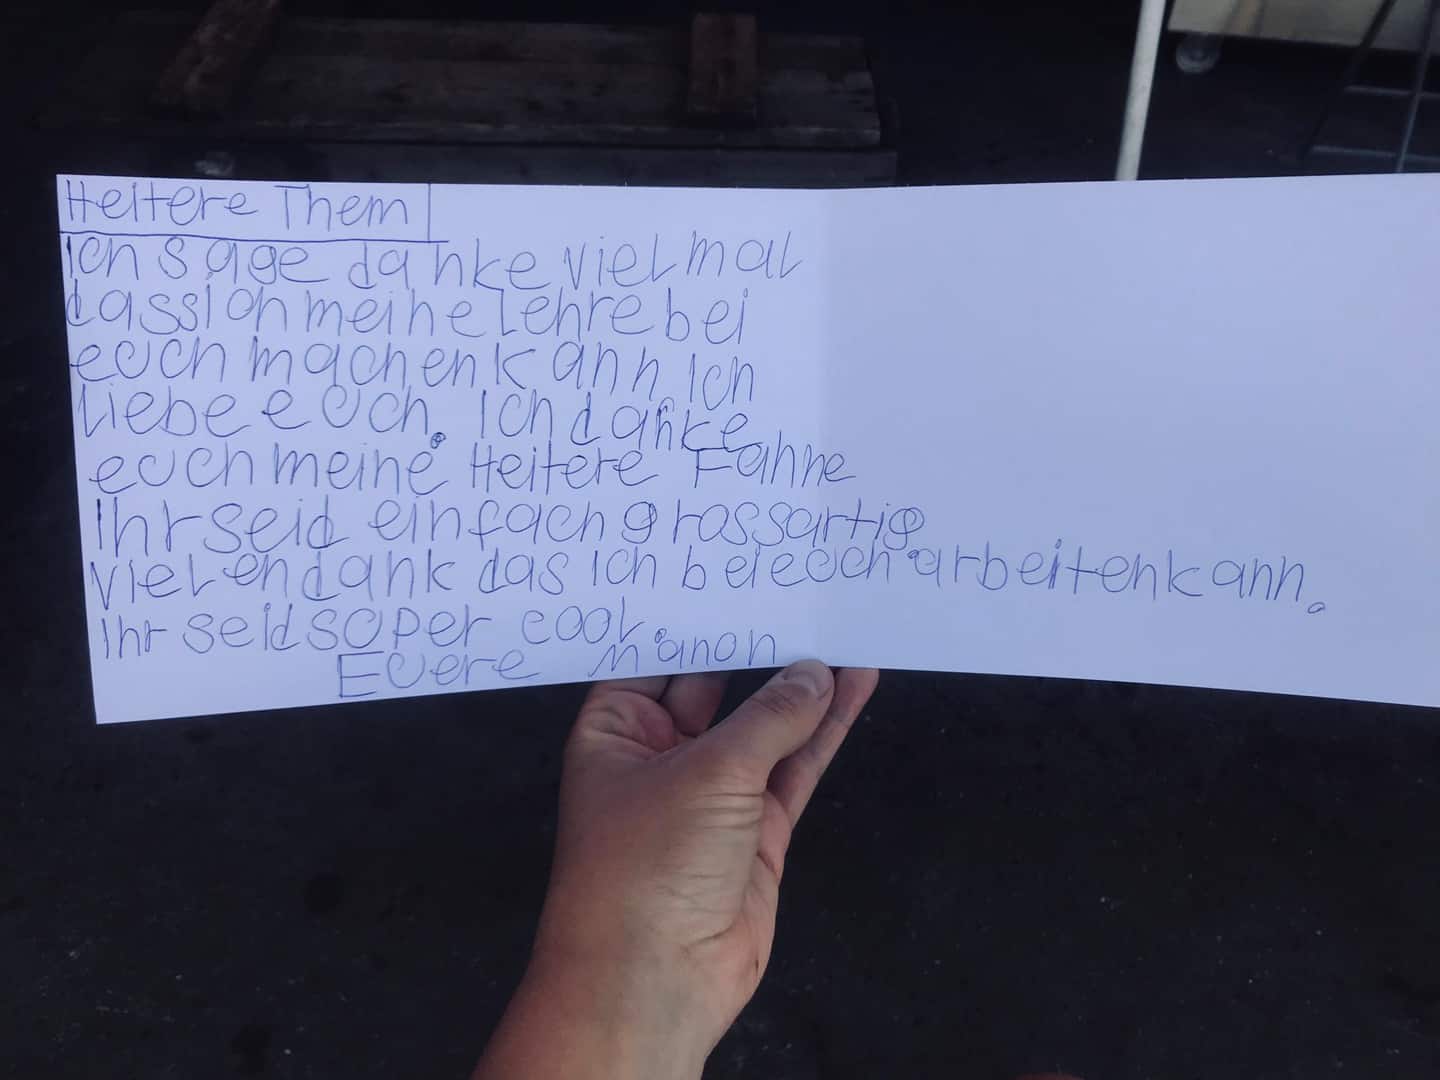 Heitere Them
Ich sage danke vielmal
dass ich meine lehre bei
euch machen kann. Ich
liebe euch. Ich danke
euch meine Heitere Fahne
Ihr seid einfach grossartig.
vielen dank das ich bei euch arbeiten kann.
Ihr seid super cool.
Euere Manon